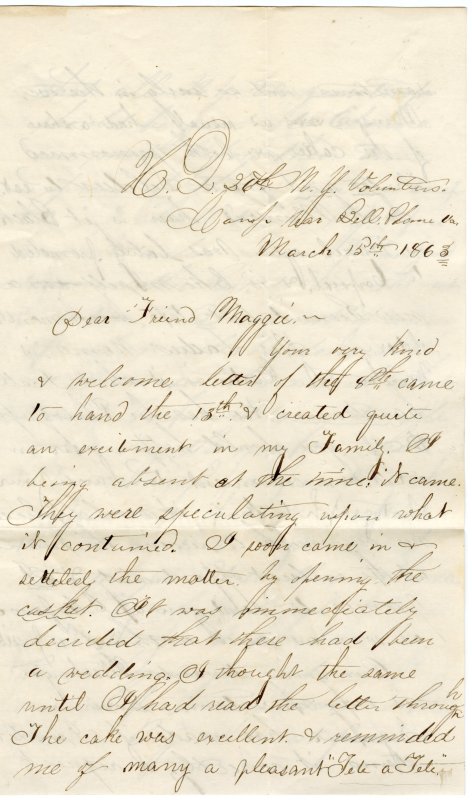 H. Q. 38th N. Y. Volunters.
Camp near Bell. Plane Va.
March 15th 1863
Dear Friend Maggie.
Your very kind
& welcome letter of the 8th came
to hand the 13th & created quite
an excitement in my Family. I
being absent at the time it came.
They were speculating upon what
it contained. I soon came in &
settled the matter by opening the
casket. It was immediately
decided that there had been
a wedding. I thought the same
until I had read the letter through
The cake was excellent & reminded
me of many a pleasant "Tete a Tete"